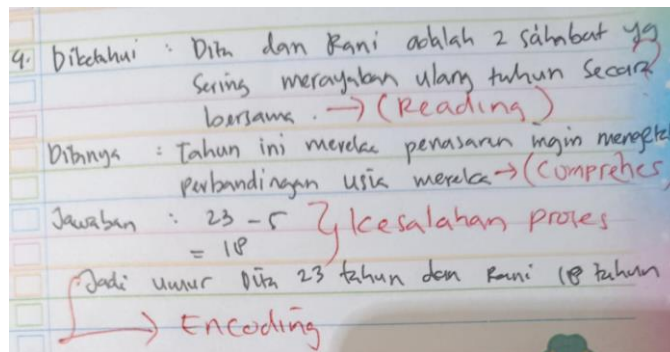 9. Diketahui : Dita dan Rani adalah 2 sahabat yg
sering merayakan ulang tahun secara
bersama. → (Reading)
Ditanya : Tahun ini mereka penasaran ingin mengeta
perbandingan usia mereka → (Comprehes
Jawaban : 23 - 5 } kesalahan proses
= 18
Jadi umur Dita 23 tahun dan Rani 18 tahun
→ Encoding